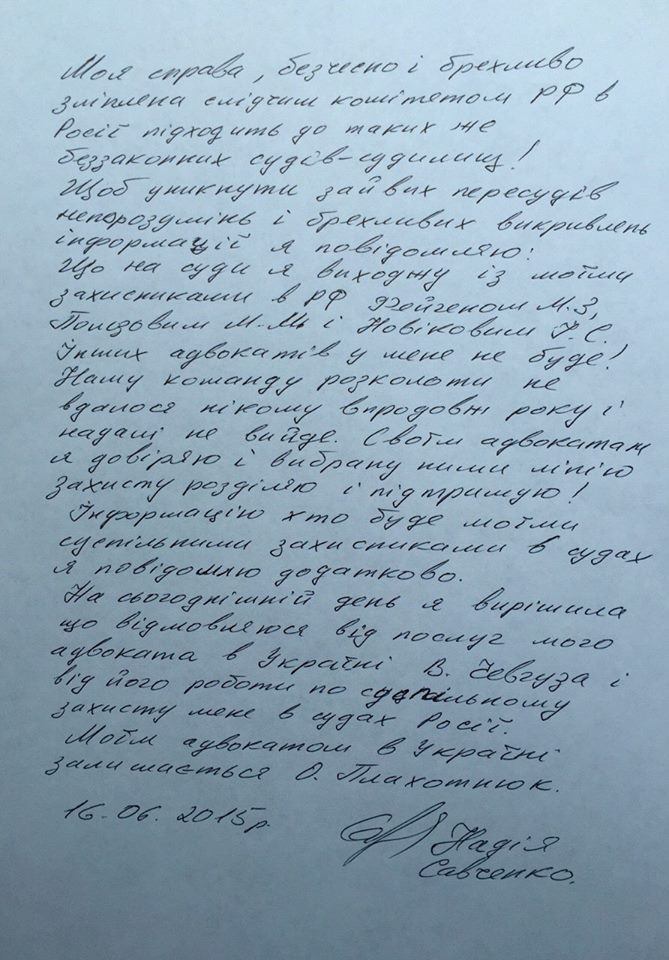 Моя справа, безчесно і брехливо
зліплена слідчим комітетом РФ в
Росії підходить до таких же
беззаконних судів-судилищ!
Щоб уникнути зайвих пересудів
непорозумінь і брехливих викривлень
інформації я повідомляю:
Що на суди я виходжу із моїми
захисниками в РФ Фейгеном М.З,
Полозовим М.М. і Новіковим І.С.
Інших адвокатів у мене не буде!
Нашу команду розколоти не
вдалося нікому впродовж року і
надалі не вийде. Своїм адвокатам
я довіряю і вибрану ними лінію
захисту розділяю і підтримую!
Інформацію хто буде моїми
суспільними захисниками в судах
я повідомлю додатково.
На сьогоднішній день я вирішила
що відмовляюся від послуг мого
адвоката в Україні В. Чевгуза і
від його роботи по суспільному
захисту мене в судах Росії.
Моїм адвокатом в Україні
залишається О. Плахотнюк.
16.06.2015р. Надія
Савченко.